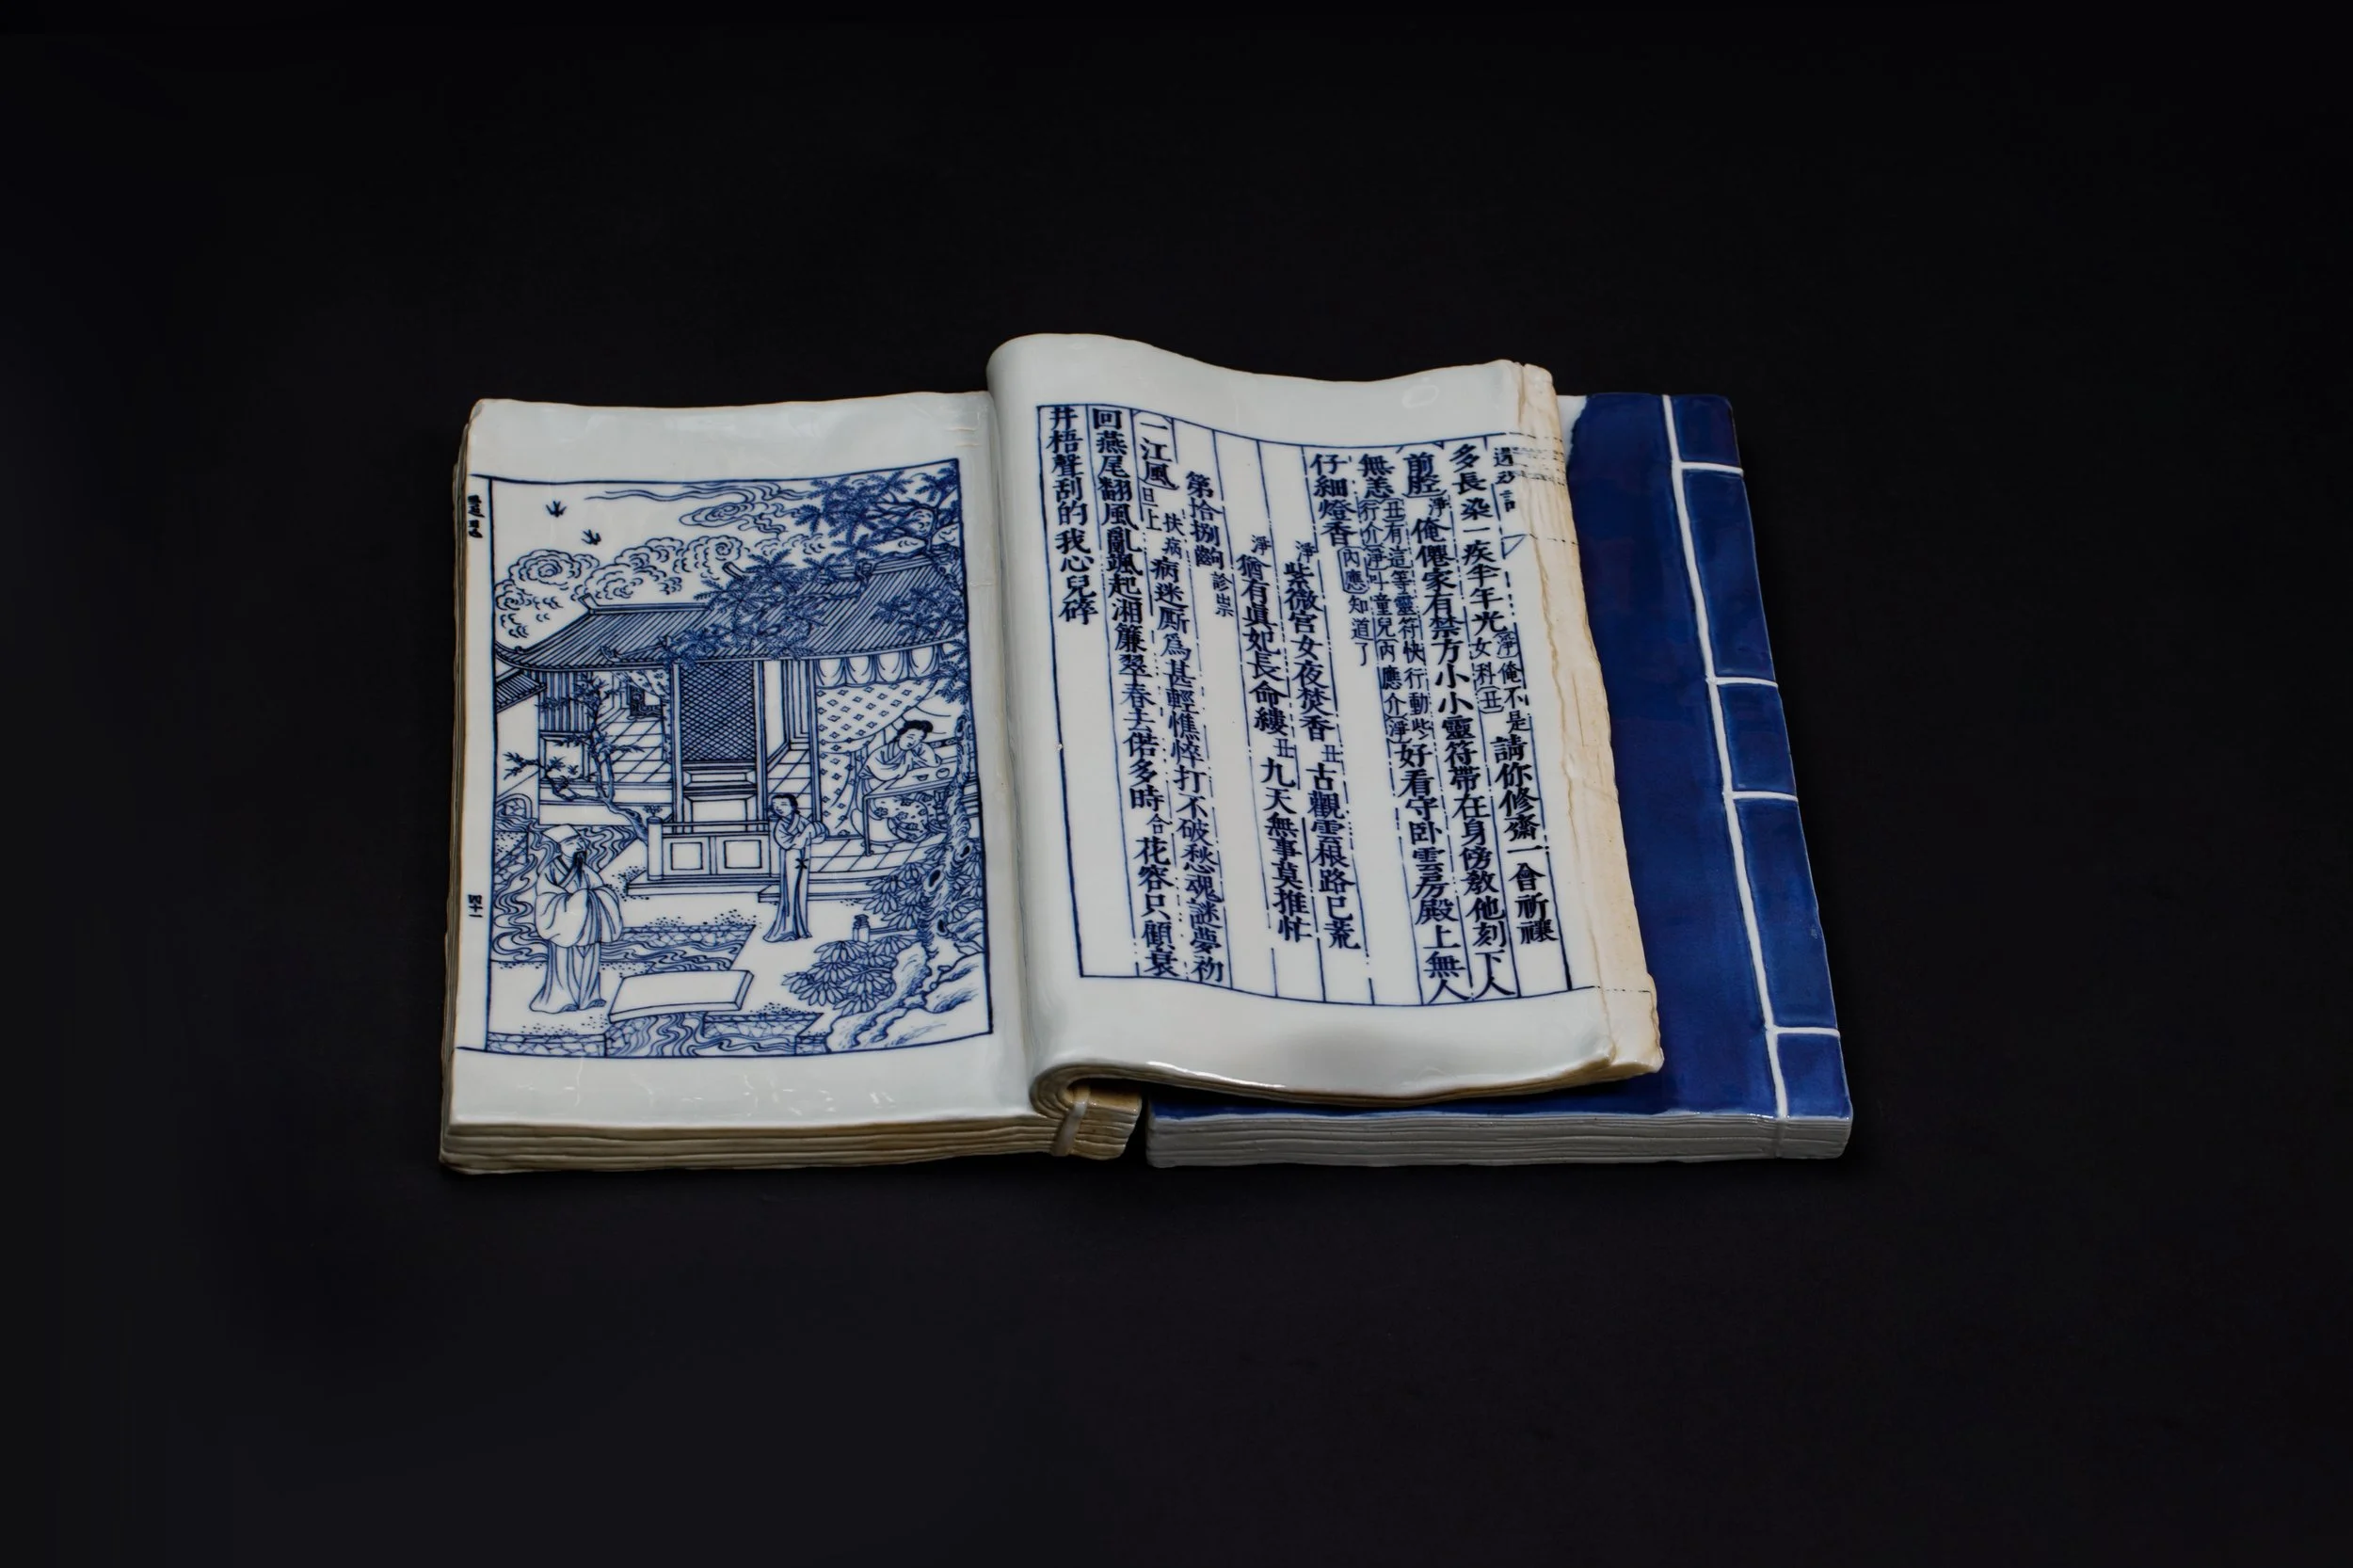 多長染一疾半年光淨俺不是女科丑請你修齋一會祈禳
前腔淨俺僊家有禁方小小靈符帶在身傍教他刻下人
無恙丑有這等靈符快行動些行介淨叫童兒內應介淨好看守卧雲房殿上無人
仔細燈香內應知道了
淨紫微宮女夜焚香丑古觀雲根路已荒
淨猶有眞妃長命縷丑九天無事莫推忙
第拾捌齣診祟
一江風扶病旦上病迷厮爲甚輕憔悴打不破愁魂謎夢初
回燕尾翻風亂颯起湘簾翠春去偌多時合花容只顧衰
井梧聲刮的我心兒碎
四十一